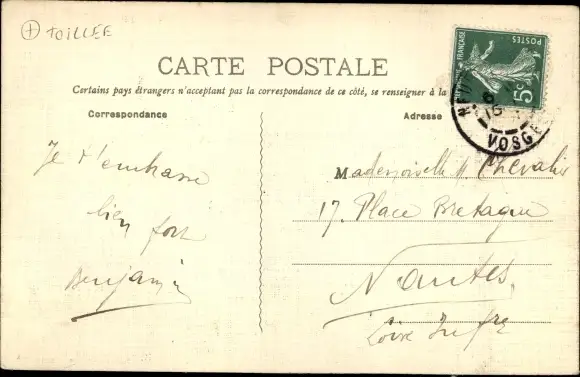 + TOILLEE
CARTE POSTALE
Certains pays étrangers n'acceptant pas la correspondance de ce côté, se renseigner à la
RÉPUBLIQUE FRANÇAISE
POSTES
5c
VOSGES
Correspondance
Adresse
Je t'embrasse
bien fort
Benjamin
Mademoiselle M Chevalier
17. Place Bretagne
Nantes,
Loire Infre